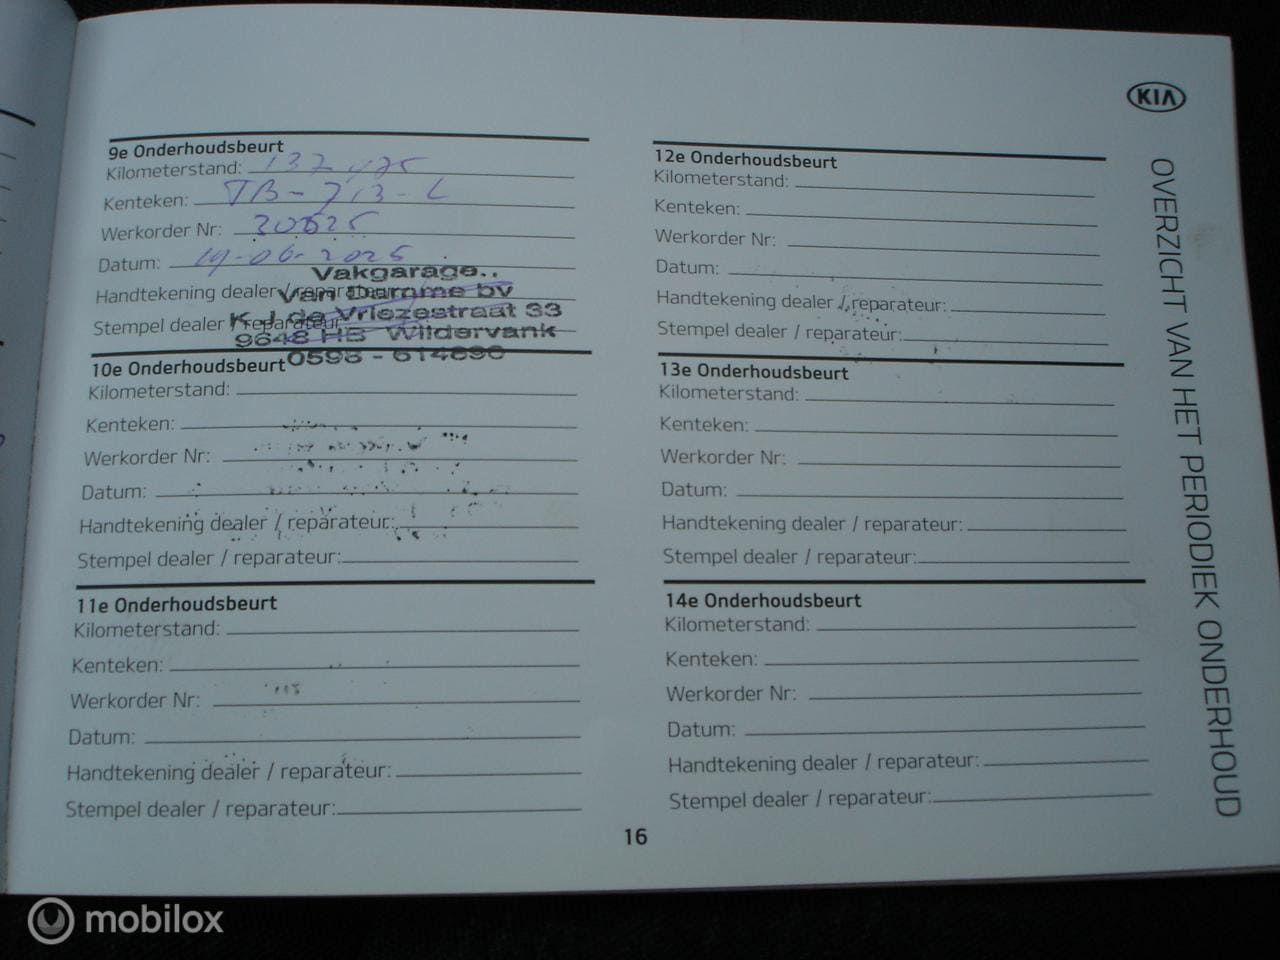 KIA
OVERZICHT VAN HET PERIODIEK ONDERHOUD
9e Onderhoudsbeurt
Kilometerstand: 137475
Kenteken: TB-713-L
Werkorder Nr:
Datum: 19-06-2025
Handtekening dealer / reparateur:
Stempel dealer / reparateur:
Vakgarage..
Van Damme bv
K.J. de Vriezestraat 33
9648 HB Wildervank
0598 - 614690
10e Onderhoudsbeurt
Kilometerstand:
Kenteken:
Werkorder Nr:
Datum:
Handtekening dealer / reparateur:
Stempel dealer / reparateur:
11e Onderhoudsbeurt
Kilometerstand:
Kenteken:
Werkorder Nr:
Datum:
Handtekening dealer / reparateur:
Stempel dealer / reparateur:
12e Onderhoudsbeurt
Kilometerstand:
Kenteken:
Werkorder Nr:
Datum:
Handtekening dealer / reparateur:
Stempel dealer / reparateur:
13e Onderhoudsbeurt
Kilometerstand:
Kenteken:
Werkorder Nr:
Datum:
Handtekening dealer / reparateur:
Stempel dealer / reparateur:
14e Onderhoudsbeurt
Kilometerstand:
Kenteken:
Werkorder Nr:
Datum:
Handtekening dealer / reparateur:
Stempel dealer / reparateur:
16
mobilox